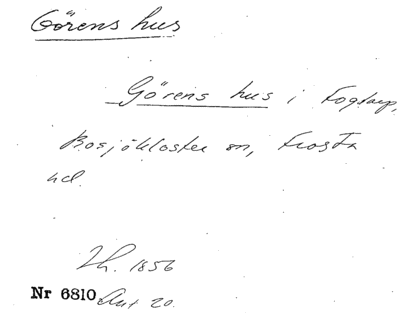 Görens hus
Görens hus i Fogtarp,
Bosjökloster sn, Frosta
hd.
Th. 1856
Nr 6810 Ant 20.